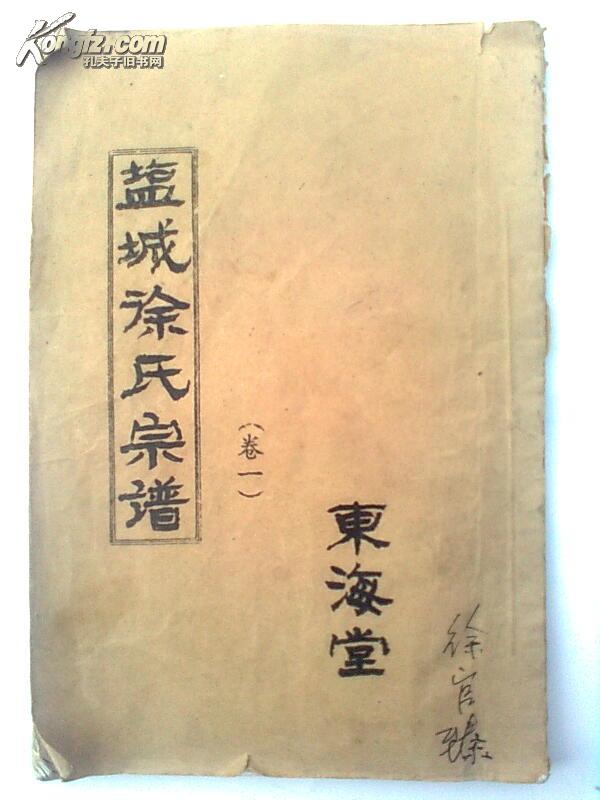 Kongfz.com
孔夫子旧书网
盐城徐氏宗谱
(卷一)
東海堂
徐官臻